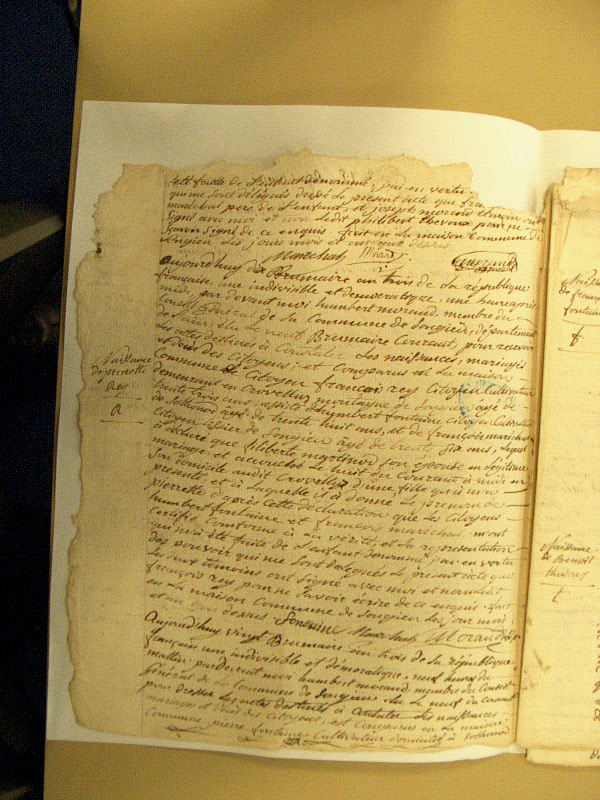 été faitte de l'enfant dénommé, j'ai en vertu
qui me sont délégués le present acte que
marechal pere de l'enfant et joseph morand temoin ont
Signé avec moi et non ledit philibert thevond pour ne
Savoir Signé de ce enquis fait en la maison Commune de
Songieu les jours mois et an que dessus
Marechal Morand
aujourd'huy dix Brumaire an trois de la république
française une indivisible et democratique, une heure après
midi, par devant moi humbert morand, membre du
Conseil general de la Commune de Songieu, departement
de l'ain, élu le neuf Brumaire Courant, pour recevoir
les actes destinés à Constater les naissances, mariages
et décès des Citoyens; est Comparus en la maison
Commune le Citoyen francois rey Citoyen Cultivateur
demeurant en Crovellus montagne de Songieu, âgé de
trente trois ans, assisté d'humbert fontaine Citoyen Cultivateur
de Sothonod âgé de trente huit ans, et de françois marechal
Citoyen de Songieu âgé de trente Six ans, lequel
a déclaré que filiberte martinod son epouse en légitime
mariage, est accouché le huit du Courant à midi en
Son domicile audit Crovellus d'une fille qu'il m'a
presenté, et à laquelle il a donné le prenom de
pierrette d'après Cette déclaration que les Citoyens
humbert fontaine et francois marechal m'ont
Certifié Conforme à la vérité, et la représentation
qui m'a été faite de l'enfant denommé j'ai en vertu
des pouvoir qui me sont delegués le present acte que
les deux temoins ont Signé avec moi et non ledit
françois rey pour ne Savoir écrire de ce enquis. fait
en la maison Commune de Songieu les jour mois
et an que dessus fontaine Marechal Morand
Aujourd'huy vingt Brumaire an trois de la république
française une indivisible et démocratique, neuf heures du
mattin, pardevant moi humbert morand membre du Conseil
Général de la Commune de Songieu élu le neuf du courant
pour dresser les actes destinés à Constater les naissances
mariages et décès des citoyens, est Comparus en la maison
Commune pierre fontaine Cultivateur domicilié à Sothonod
Naissance
de pierrette
Rey
Naissance
de Benoit